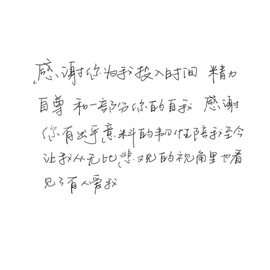 感谢你为我投入时间 精力
自尊 和一部份你的自我 感谢
你有出乎意料的韧性陪我至今
让我从无比悲观的视角里也看
见了有人爱我